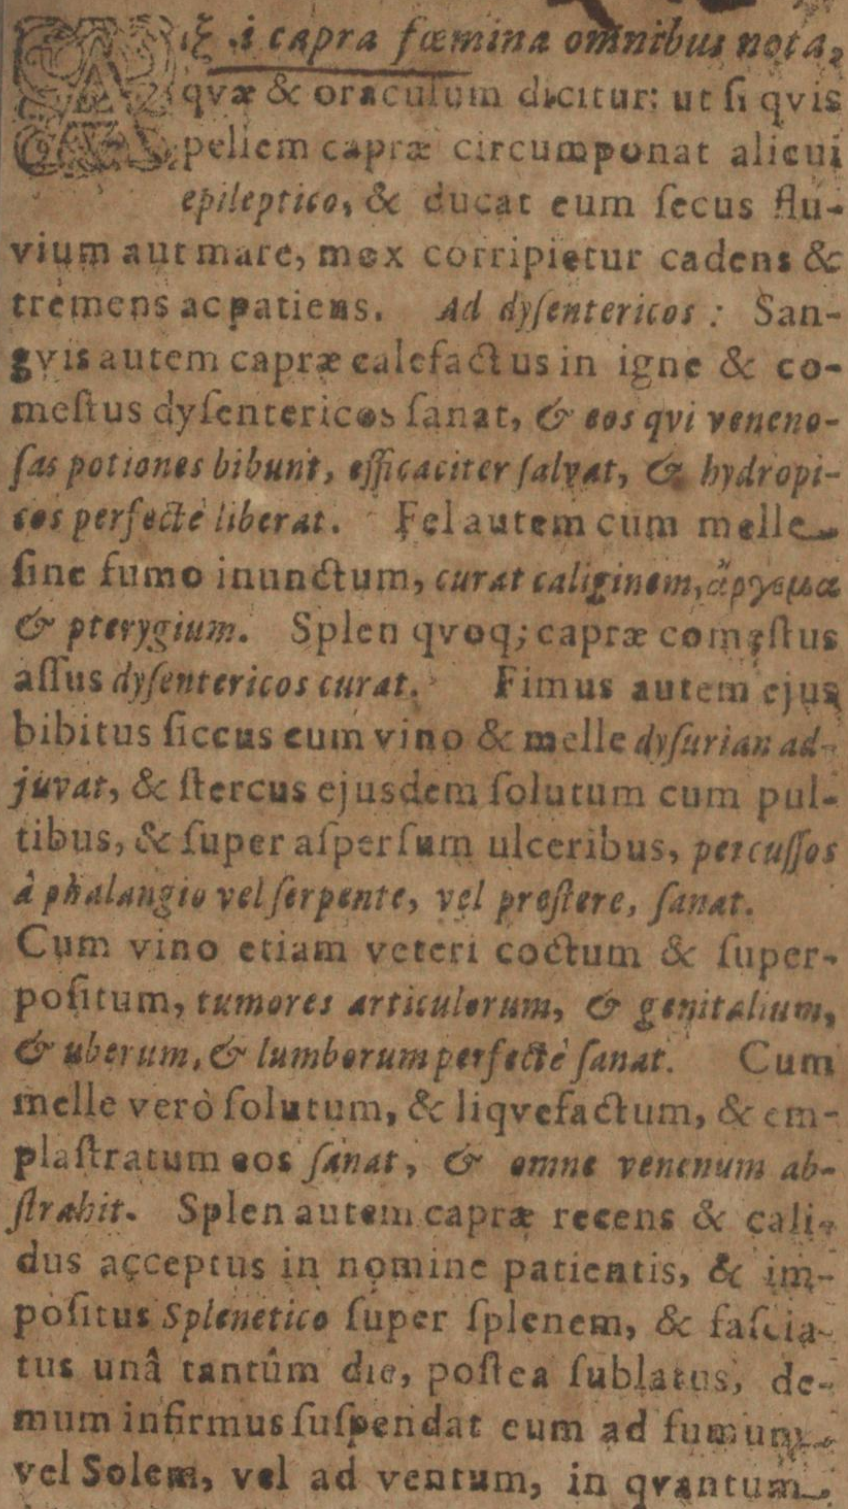 Æξ .i capra fœmina omnibus nota,
qvæ & oraculum dicitur: ut ſi qvis
pellem capræ circumponat alicui
epileptico, & ducat eum ſecus flu-
vium aut mare, mox corripietur cadens &
tremens ac patiens. Ad dyſentericos: San-
gvis autem capræ calefactus in igne & co-
meſtus dyſentericos ſanat, & eos qvi veneno-
ſas potiones bibunt, efficaciter ſalvat, & hydropi-
cos perfectè liberat. Fel autem cum melle
ſine fumo inunctum, curat caliginem, ἄργεμα
& pterygium. Splen qvoq; capræ comęſtus
aſſus dyſentericos curat. Fimus autem ejus
bibitus ſiccus cum vino & melle dyſurian ad-
juvat, & ſtercus ejusdem ſolutum cum pul-
tibus, & ſuper aſperſum ulceribus, percuſſos
â phalangio vel ſerpente, vel preſtere, ſanat.
Cum vino etiam veteri coctum & ſuper-
poſitum, tumores articulorum, & genitalium,
& uberum, & lumborum perfectè ſanat. Cum
melle verò ſolutum, & liqvefactum, & em-
plaſtratum eos ſanat, & omne venenum ab-
ſtrahit. Splen autem capræ recens & cali-
dus acceptus in nomine patientis, & im-
poſitus Splenetico ſuper ſplenem, & faſcia-
tus unâ tantûm die, poſtea ſublatus, de-
mum infirmus ſuſpendat eum ad fumum
vel Solem, vel ad ventum, in qvantum